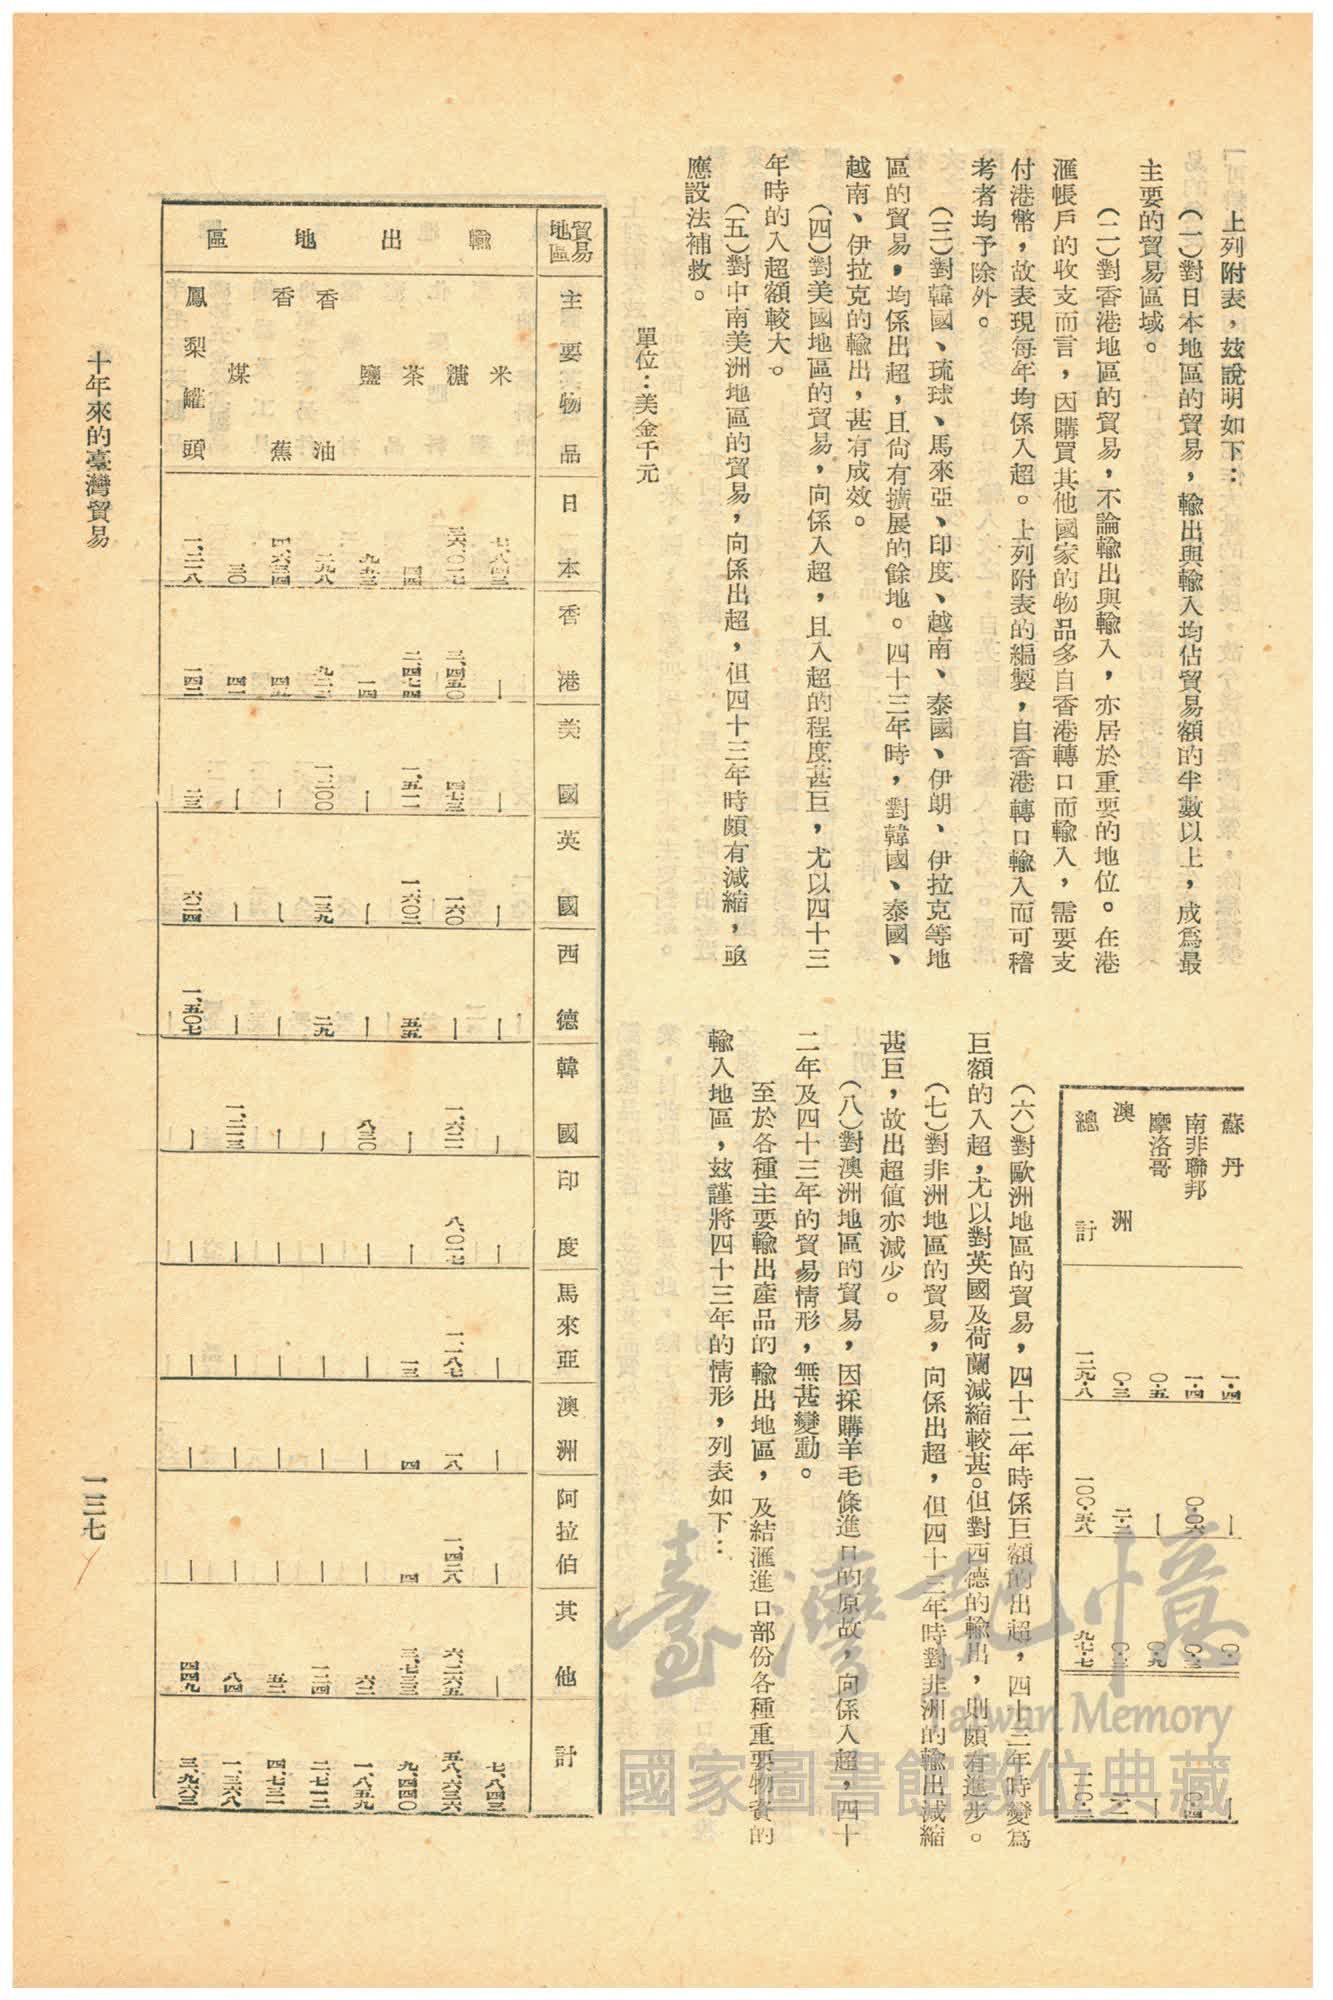 上列附表，玆說明如下：
（一）對日本地區的貿易，輸出與輸入均佔貿易額的半數以上，成爲最
主要的貿易區域。
（二）對香港地區的貿易，不論輸出與輸入，亦居於重要的地位。在港
滙帳戶的收支而言，因購買其他國家的物品多自香港轉口而輸入，需要支
付港幣，故表現每年均係入超。上列附表的編製，自香港轉口輸入而可稽
考者均予除外。
（三）對韓國、琉球、馬來亞、印度、越南、泰國、伊朗、伊拉克等地
區的貿易，均係出超，且尙有擴展的餘地。四十三年時，對韓國、泰國、
越南、伊拉克的輸出，甚有成效。
（四）對美國地區的貿易，向係入超，且入超的程度甚巨，尤以四十三
年時的入超額較大。
（五）對中南美洲地區的貿易，向係出超，但四十三年時頗有減縮，亟
應設法補救。
蘇丹 一·四 ｜ 〇·一 ｜
南非聯邦 一·四 〇·〇六
摩洛哥 〇·五 ｜ 〇·九 ｜
澳洲 〇·三 二·二
總計 一二九·八 一〇〇·五八 九七·七
（六）對歐洲地區的貿易，四十二年時係巨額的出超，四十三年時變爲
巨額的入超，尤以對英國及荷蘭減縮較甚。但對西德的輸出，則頗有進步。
（七）對非洲地區的貿易，向係出超，但四十三年時對非洲的輸出減縮
甚巨，故出超值亦減少。
（八）對澳洲地區的貿易，因採購羊毛條進口的原故，向係入超，四十
二年及四十三年的貿易情形，無甚變動。
至於各種主要輸出產品的輸出地區，及結滙進口部份各種重要物資的
輸入地區，玆謹將四十三年的情形，列表如下：
單位：美金千元
貿易地區 主要物品 日本 香港 美國 英國 西德 韓國 印度 馬來亞 澳洲 阿拉伯 其他 計
輸出地區
米 七、八四三 ｜ ｜ ｜ ｜ ｜ ｜ ｜ ｜ ｜ ｜ 七、八四三
糖 三六、〇一七 三、四五〇 四七三 一六〇 ｜ 一、六二一 八、〇一七 一、一八七 一八 一、四二八 六、二六五 五八、六三六
茶 四四 二、四七四 一、五一一 一、六〇二 五五 ｜ ｜ 一三 四 四 三、七三三 九、四四〇
鹽 九五三 一四 ｜ ｜ ｜ 八三〇 ｜ ｜ ｜ ｜ 六二 一、八五九
香油 二九八 九二二 一、二〇〇 一三九 二九 ｜ ｜ ｜ ｜ ｜ 一二四 二、七一二
香蕉 四、六三四 四五 ｜ ｜ ｜ ｜ ｜ ｜ ｜ ｜ 五二 四、七三一
煤 三〇 四一 ｜ ｜ ｜ 一、二一三 ｜ ｜ ｜ ｜ 八四 一、三六八
鳳梨罐頭 一、二一八 一四二 二三 六二四 一、五〇七 ｜ ｜ ｜ ｜ ｜ 四四九 三、九六三
十年來的臺灣貿易
一三七
臺灣記憶
Taiwan Memory
國家圖書館數位典藏